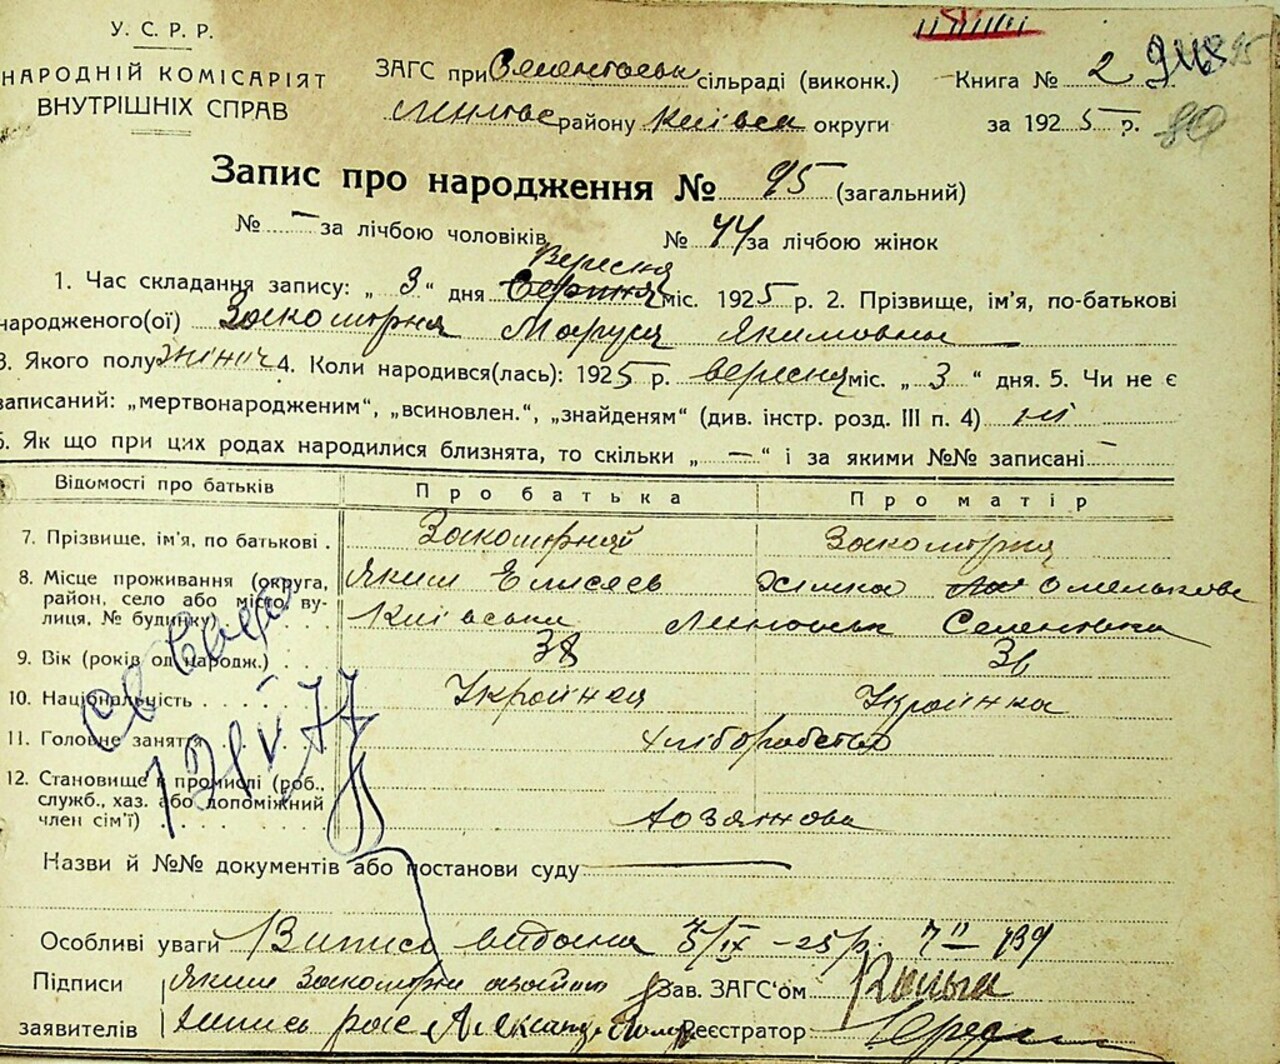 У. С. Р. Р.
НАРОДНІЙ КОМІСАРІЯТ
ВНУТРІШНІХ СПРАВ
ЗАГС при сільраді (виконк.)
району Київськ округи
Книга № 2
за 1925 р.
80
Запис про народження № 95 (загальний)
№ — за лічбою чоловіків № 44 за лічбою жінок
Вересня
1. Час складання запису: „ 3 “ дня Серпня міс. 1925 р. 2. Прізвище, ім'я, по-батькові
народженого(ої) Закоторня Маруся Якимовна
3. Якого полу жіноч 4. Коли народився(лась): 1925 р. вересня міс. „ 3 “ дня. 5. Чи не є
записаний: „мертвонародженим“, „всиновлен.“, „знайденям“ (див. інстр. розд. III п. 4) ні
6. Як що при цих родах народилися близнята, то скільки „ — “ і за якими №№ записані —
Відомості про батьків Про батька Про матір
7. Прізвище, ім'я, по батькові . Закоторний Закоторня
8. Місце проживання (округа, Яким Елисеев Хімка Омелькова
район, село або місто, ву-
лиця, № будинку) Київська
9. Вік (років од народж.) . . . 38
10. Національність . . . . . . Українец Українка
11. Головне заняття . . . . . хліборобство
12. Становище в промислі (роб.,
служб., хаз. або допоміжний
член сім'ї) . . . . . . . .
Назви й №№ документів або постанови суду —
Особливі уваги Випись видана 5/IX – 25 р.
Підписи Яким Закоторни Зав. ЗАГС'ом
заявителів Реєстратор